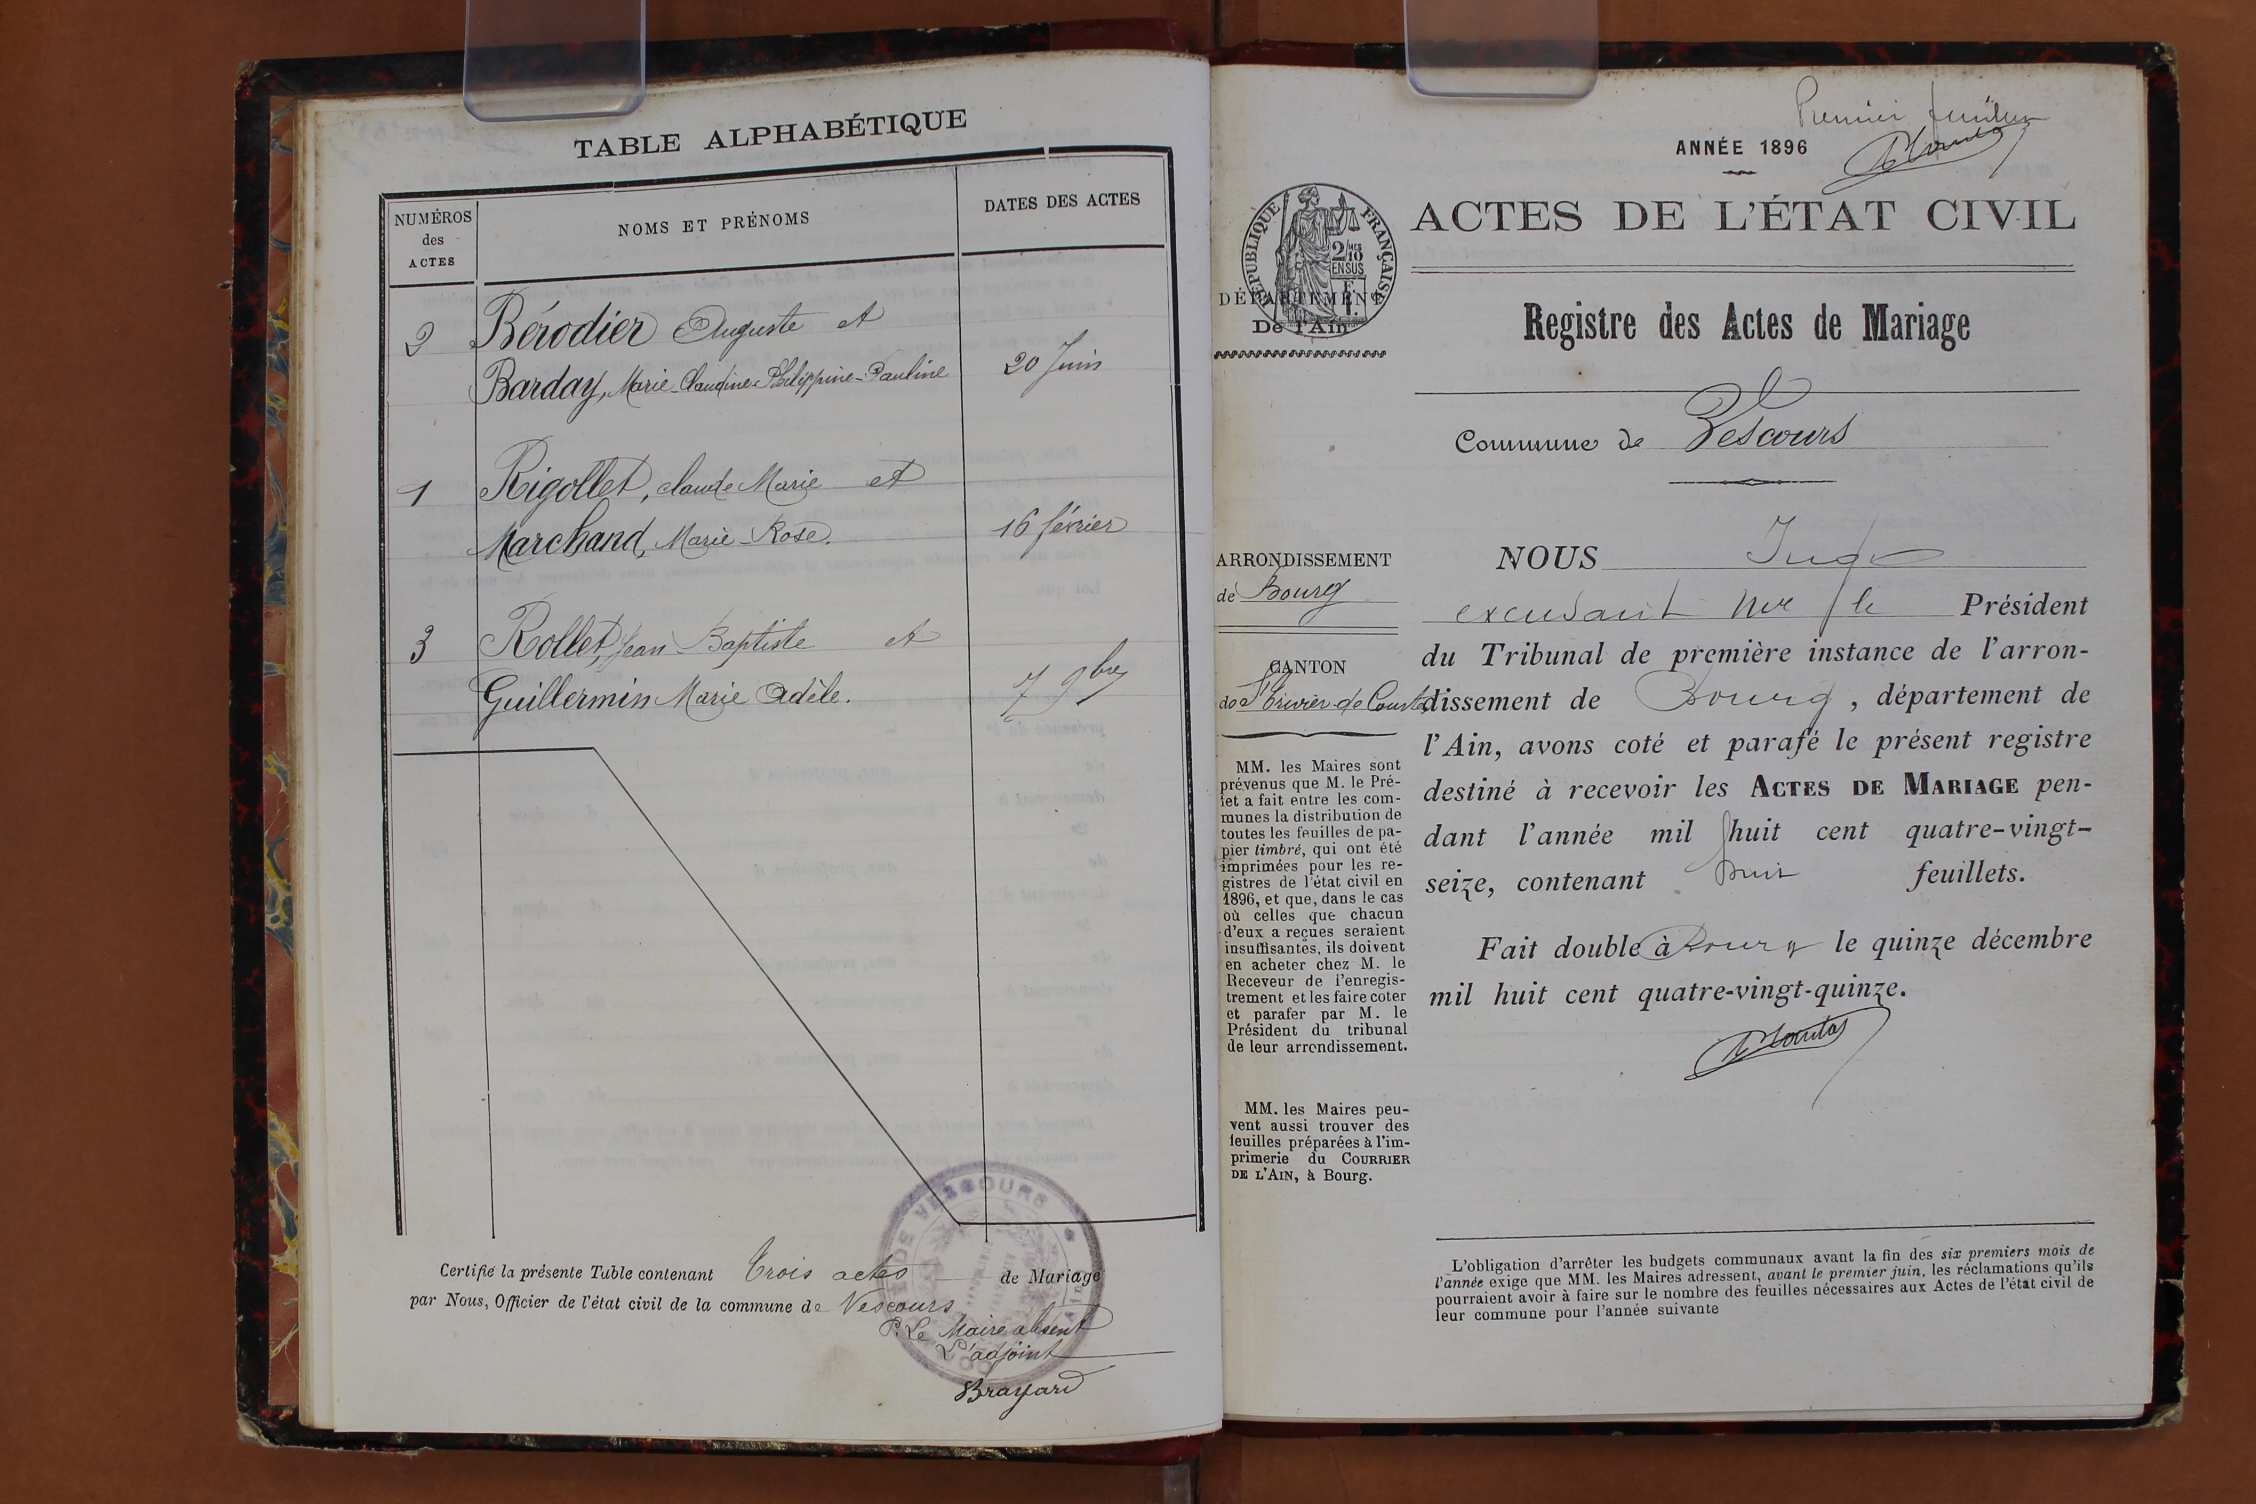 TABLE ALPHABÉTIQUE
NUMÉROS
des
ACTES
NOMS ET PRÉNOMS
DATES DES ACTES
2
Bérodier Auguste et
Barday, Marie-Claudine-Philippine-Pauline
20 Juin
1
Rigollet, claude Marie et
Marchand, Marie-Rose.
16 février
3
Rollet, Jean Baptiste et
Guillermin Marie Adèle.
7 9bre
Certifié la présente Table contenant Trois actes de Mariage
par Nous, Officier de l'état civil de la commune de Vescours
P. Le Maire absent
L'adjoint
Brayard
DE VESCOURS
Premier feuillet
ANNÉE 1896
RÉPUBLIQUE FRANÇAISE
2/10
EN SUS
ACTES DE L'ÉTAT CIVIL
DÉPARTEMENT
De l'Ain
Registre des Actes de Mariage
Commune de Vescours
ARRONDISSEMENT
de Bourg
CANTON
de St Trivier-de-Courtes
MM. les Maires sont
prévenus que M. le Pré-
fet a fait entre les com-
munes la distribution de
toutes les feuilles de pa-
pier timbré, qui ont été
imprimées pour les re-
gistres de l'état civil en
1896, et que, dans le cas
où celles que chacun
d'eux a reçues seraient
insuffisantes, ils doivent
en acheter chez M. le
Receveur de l'enregis-
trement et les faire coter
et parafer par M. le
Président du tribunal
de leur arrondissement.
MM. les Maires peu-
vent aussi trouver des
feuilles préparées à l'im-
primerie du COURRIER
DE L'AIN, à Bourg.
NOUS Juge
excusant Mr le Président
du Tribunal de première instance de l'arron-
dissement de Bourg, département de
l'Ain, avons coté et parafé le présent registre
destiné à recevoir les ACTES DE MARIAGE pen-
dant l'année mil huit cent quatre-vingt-
seize, contenant huit feuillets.
Fait double à Bourg le quinze décembre
mil huit cent quatre-vingt-quinze.
L'obligation d'arrêter les budgets communaux avant la fin des six premiers mois de
l'année exige que MM. les Maires adressent, avant le premier juin, les réclamations qu'ils
pourraient avoir à faire sur le nombre des feuilles nécessaires aux Actes de l'état civil de
leur commune pour l'année suivante